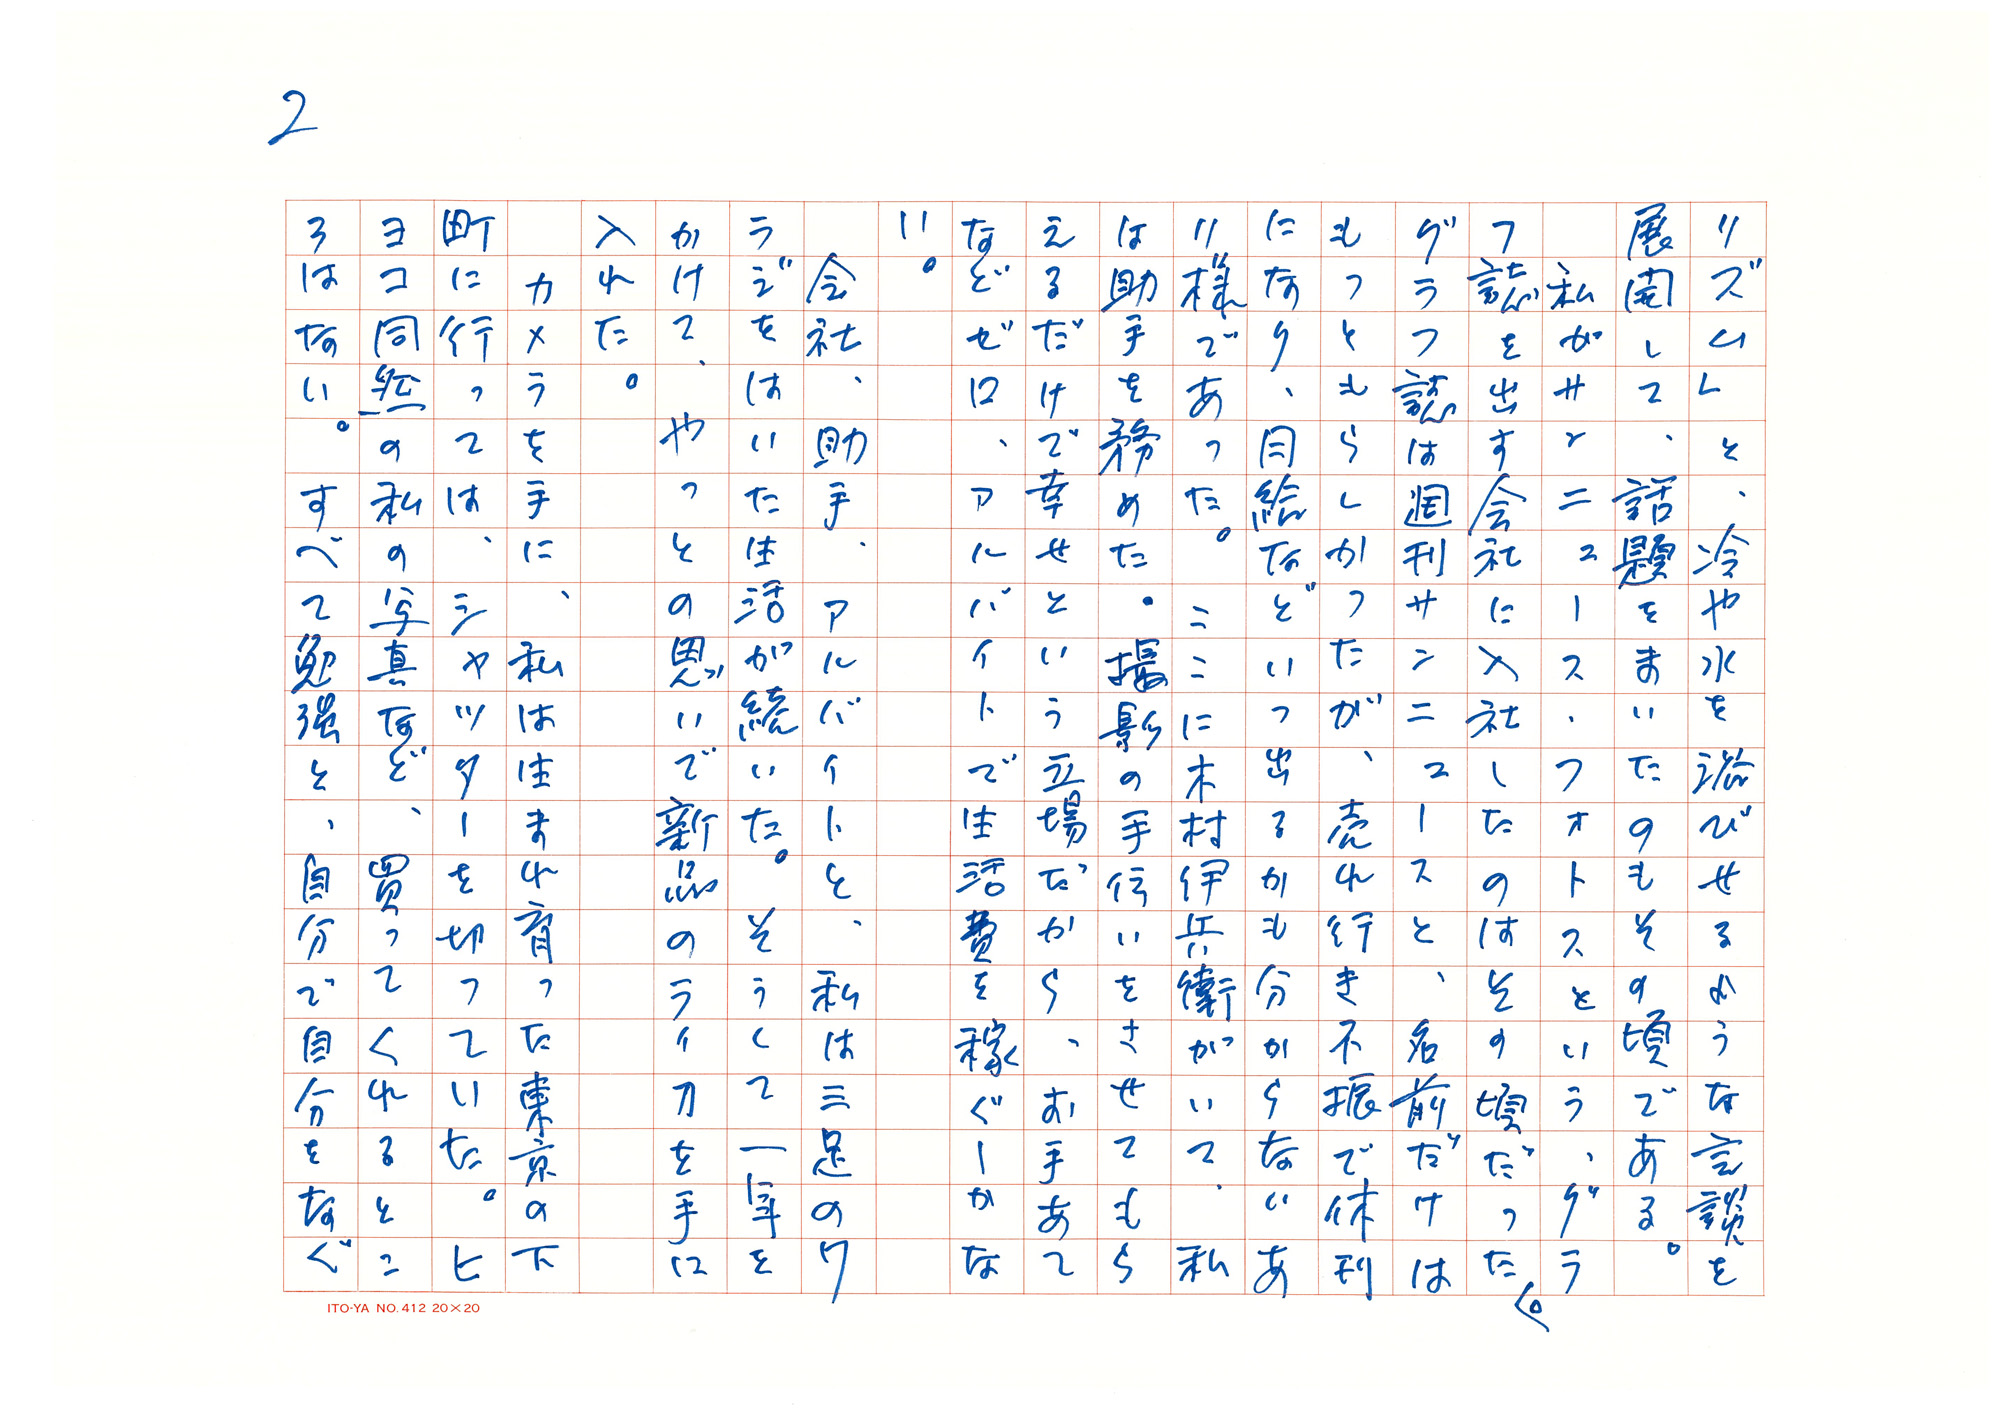 2
リズムレと、冷や水を浴びせるような言談を
展開して、話題をまいたのもその頃である。
私がサンニュース、フォトスという、グラ
フ誌を出す会社に入社したのはその頃だった。
グラフ誌は週刊サンニュースと、名前だけは
もっともらしかったが、売れ行き不振で休刊
になり、月給などいつ出るかも分からないあ
り様であった。ここに木村伊兵衛がいて、私
は助手を務めた。撮影の手伝いをさせてもら
えるだけで幸せという立場だから、お手あて
などゼロ、アルバイトで生活費を稼ぐしかな
い。
会社、助手、アルバイトと、私は三足のワ
ラジをはいた生活が続いた。そうして一年を
かけて、やっとの思いで新品のライカを手に
入れた。
カメラを手に、私は生まれ育った東京の下
町に行っては、シャッターを切っていた。ヒ
ヨコ同然の私の写真など、買ってくれるとこ
ろはない。すべて勉強と、自分で自分をなぐ
ITO-YA NO.412 20×20